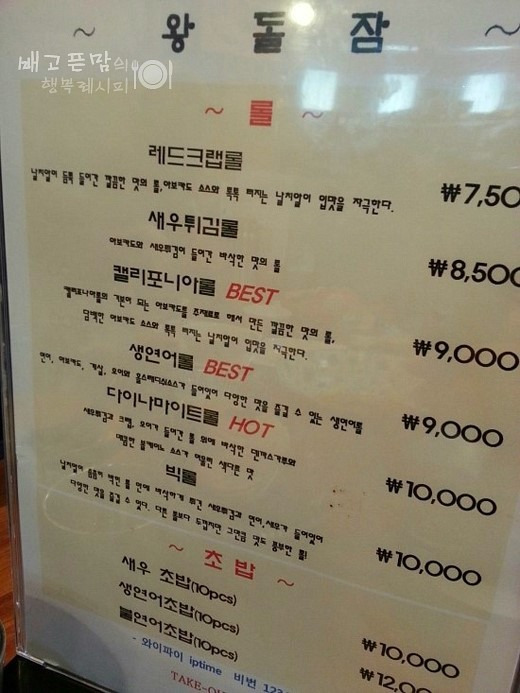 ~ 왕 돌 잠 ~
배고픈맘의
행복레시피
~ 롤 ~
레드크랩롤
날치알이 듬뿍 들어간 깔끔한 맛의 롤,아보카도 소스와 톡톡 터지는 날치알이 입맛을 자극한다.
₩7,50
새우튀김롤
아보카도와 새우튀김이 들어간 바삭한 맛의 롤
₩8,500
캘리포니아롤 BEST
캘리포니아롤의 기본이 되는 아보카도를 주재료로 해서 만든 깔끔한 맛의 롤,
담백한 아보카도 소스와 톡톡 터지는 날치알이 입맛을 자극한다.
₩9,000
생연어롤 BEST
연어, 아보카도, 게살, 오이와 홀스래디쉬소스가 들어있어 다양한 맛을 즐길 수 있는 생연어롤
₩9,000
다이나마이트롤 HOT
새우튀김과 크랩, 오이가 들어간 롤 위에 바삭한 덴까스가루와
매콤한 볼케이노 소스가 어울린 색다른 맛
₩10,000
빅롤
날치알이 듬뿍 박힌 롤 안에 바삭하게 튀긴 새우튀김과 연어,새우가 들어있어
다양한 맛을 즐길 수 있다. 다른 롤보다 두껍지만 그만큼 맛도 풍부한 롤!
₩10,000
~ 초밥 ~
새우 초밥(10pcs)
₩10,000
생연어초밥(10pcs)
₩12,00
불연어초밥(10pcs)
- 와이파이 iptime 비번 123
TAKE-OU